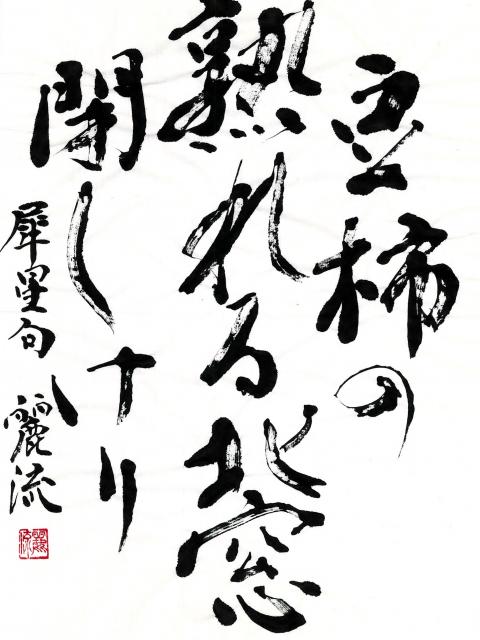 豆柿の
熟れる北窓
閉しけり
犀星句 麗流